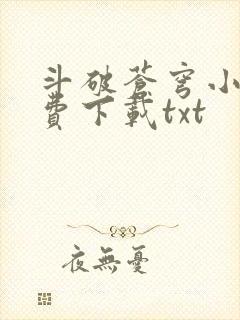 斗破苍穹小
費下載txt
夜無憂